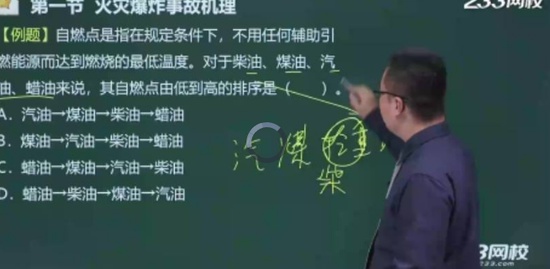 第一节 火灾爆炸事故机理
233网校
【例题】自燃点是指在规定条件下，不用任何辅助引
燃能源而达到燃烧的最低温度。对于柴油、煤油、汽
油、蜡油来说，其自燃点由低到高的排序是（ ）。
A. 汽油→煤油→柴油→蜡油
B. 煤油→汽油→柴油→蜡油
C. 蜡油→汽油→煤油→柴油
D. 蜡油→柴油→煤油→汽油
汽 煤
柴
3网校